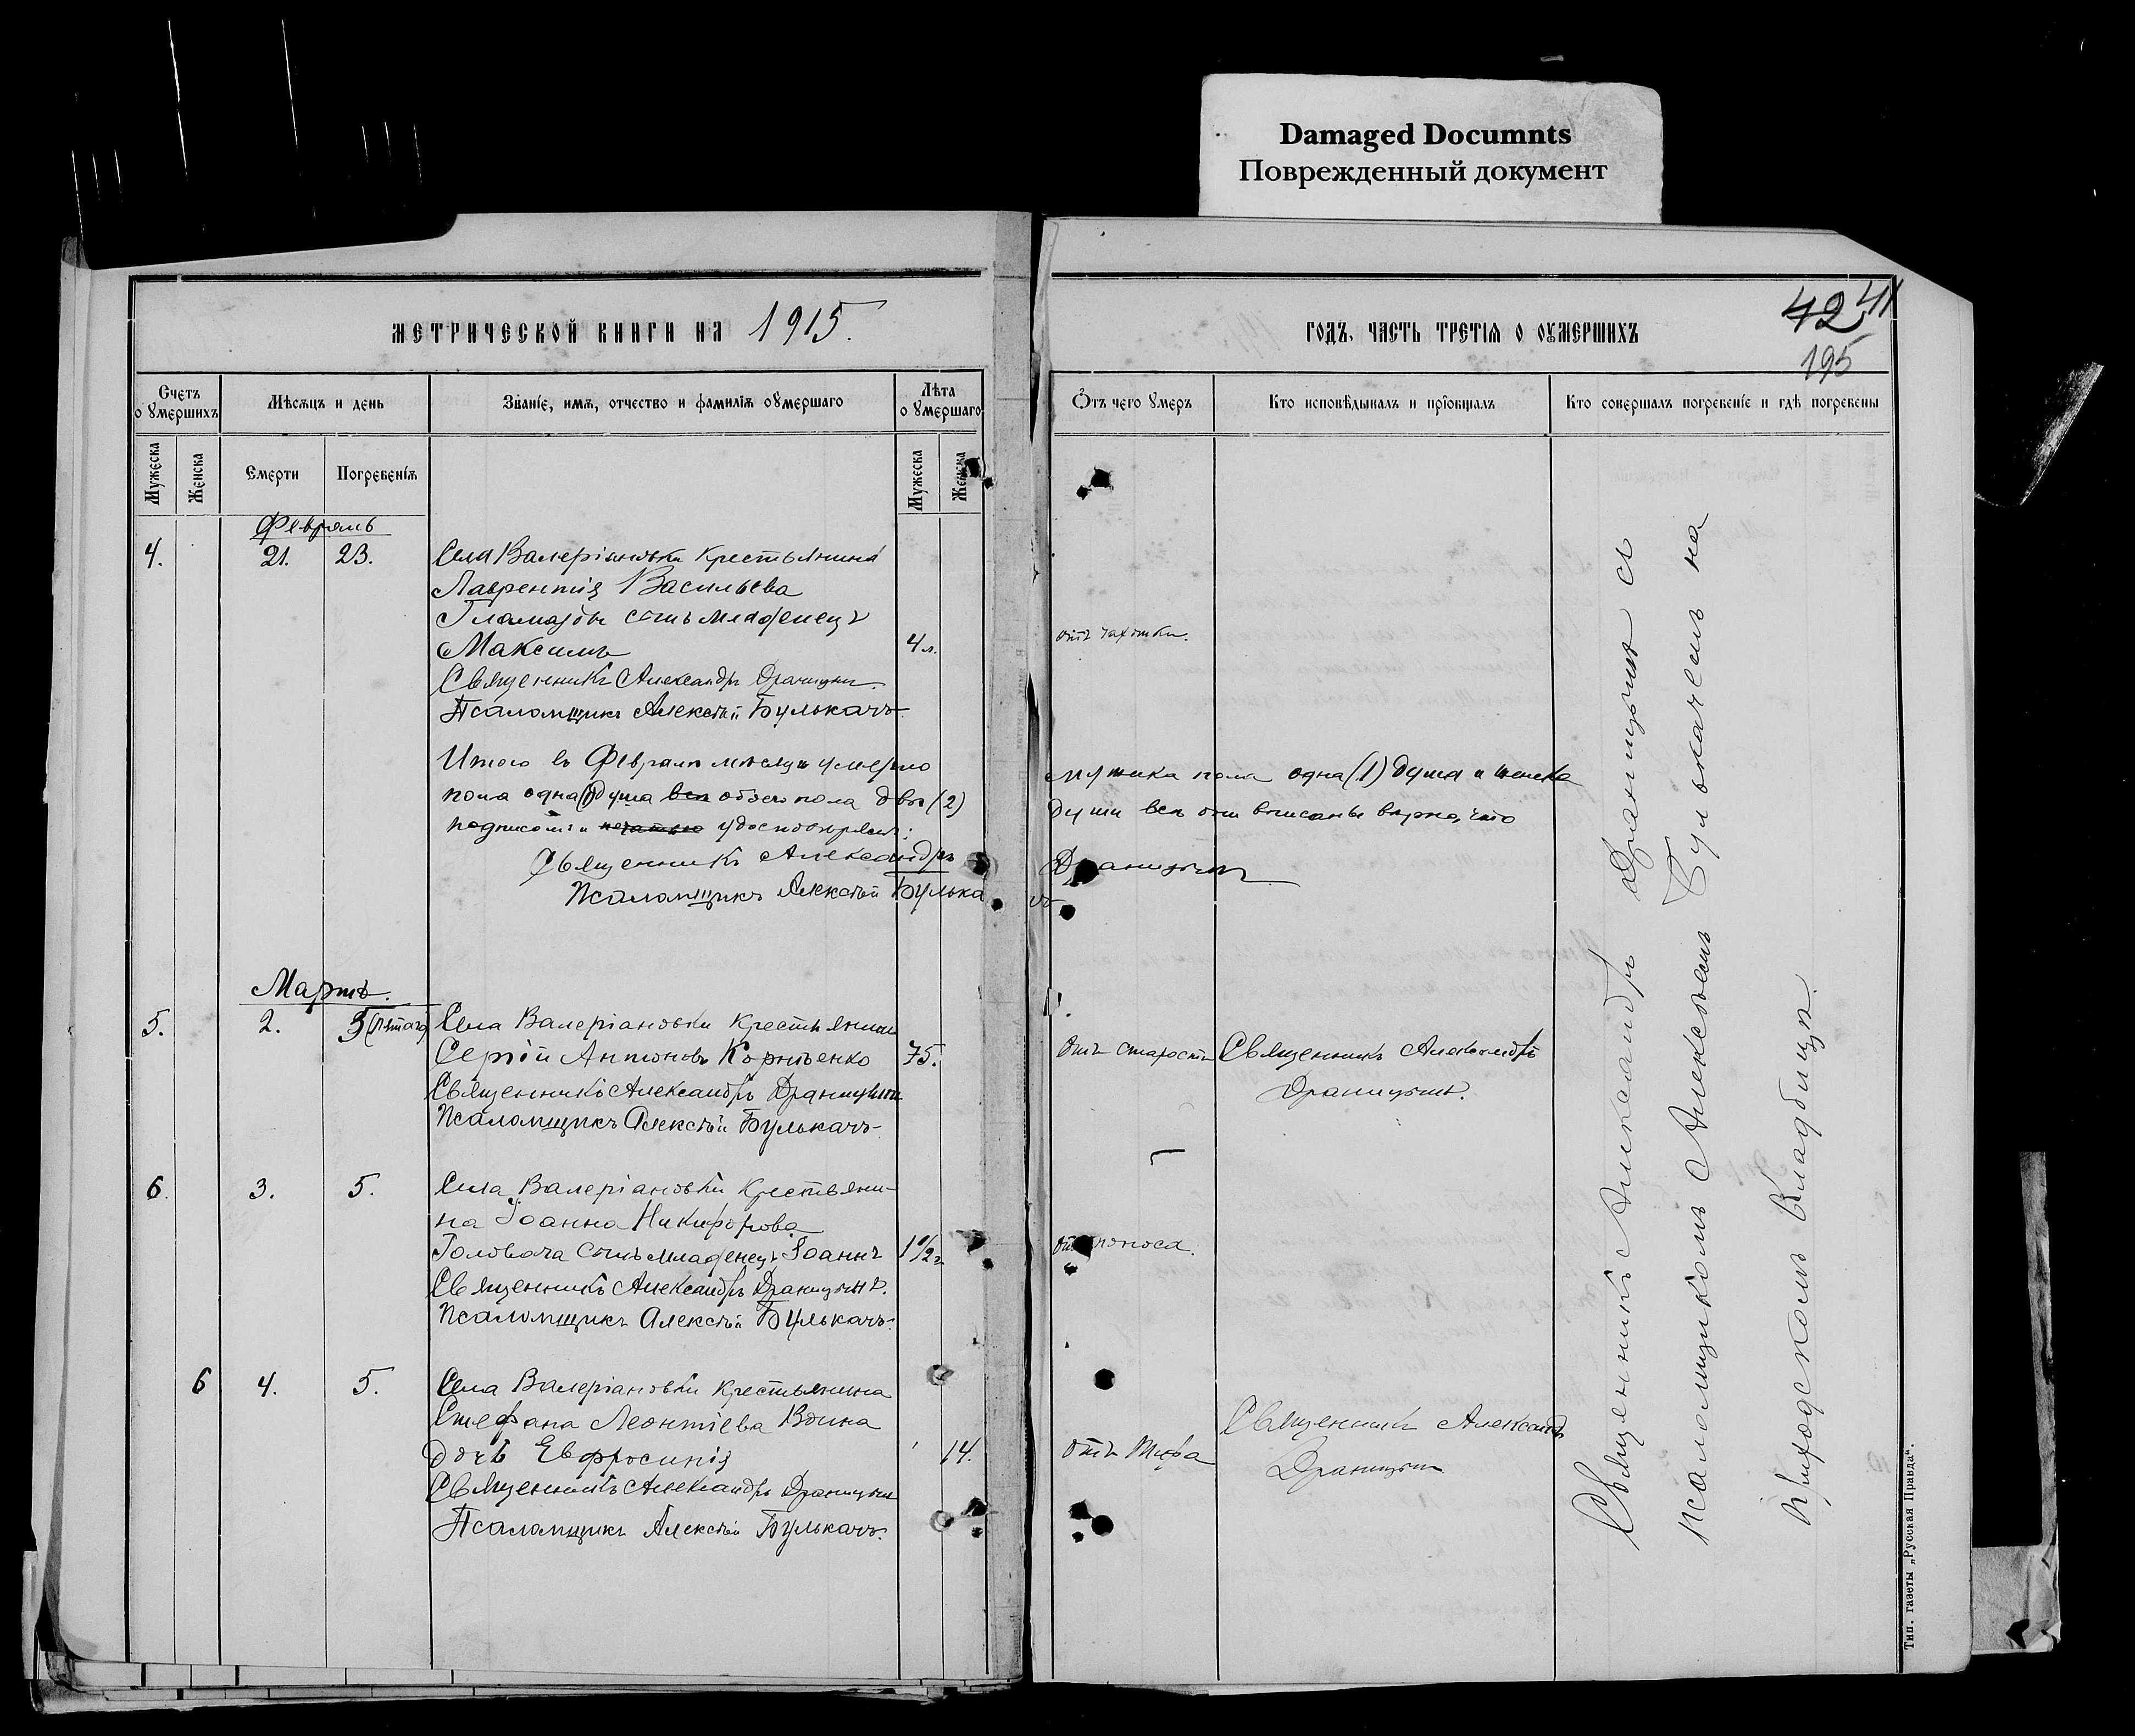 Damaged Documnts
Поврежденный документ
МЕТРИЧЕСКОЙ КНИГИ НА 1915.
ГОДЪ, ЧАСТЬ ТРЕТІЯ О ОУМЕРШИХЪ
42 41
195
Счетъ о умершихъ
Мѣсяцъ и день
Званіе, имя, отчество и фамилія оумершаго
Лѣта о умершаго
Отъ чего умеръ
Кто исповѣдывалъ и пріобщалъ
Кто совершалъ погребеніе и гдѣ погребены
Мужеска
Женска
Смерти
Погребенія
Мужеска
Женска
Февраль
4. 21. 23. Села Валеріановки крестьянина
Лаврентія Васильева
сынъ младенецъ
Максимъ 4 л. отъ чахотки.
Священникъ Александръ Драницынъ.
Псаломщикъ Алексѣй Булькачъ
Итого въ Февралѣ мѣсяцѣ умерло мужска пола одна (1) душа и женска
пола одна (1) душа все обоего пола двѣ (2) души всѣ они вписаны вѣрно, что
подписомъ и печатью удостовѣряемъ:
Священникъ Александръ Драницынъ
Псаломщикъ Алексѣй Булькачъ
Мартъ.
5. 2. 5 (пятаго) Села Валеріановки крестьянинъ
Сергій Антоновъ Корніенко 75. Отъ старости Священникъ Александръ
Священникъ Александръ Драницынъ Драницынъ.
Псаломщикъ Алексѣй Булькачъ
6. 3. 5. Села Валеріановки крестьяни-
на Іоанна Никифорова
Головача сынъ младенецъ Іоаннъ 1 1/2 г. отъ поноса.
Священникъ Александръ Драницынъ.
Псаломщикъ Алексѣй Булькачъ
6 4. 5. Села Валеріановки крестьянина
Стефана Леонтіева Воина Священникъ Александръ
дочь Евфросинія 14. отъ тифа Драницынъ
Священникъ Александръ Драницынъ
Псаломщикъ Алексѣй Булькачъ.
Священникъ Александръ Драницынъ съ
псаломщикомъ Алексѣемъ Булькачемъ на
приходскомъ кладбищѣ.
Тип. газеты „Русская Правда“.